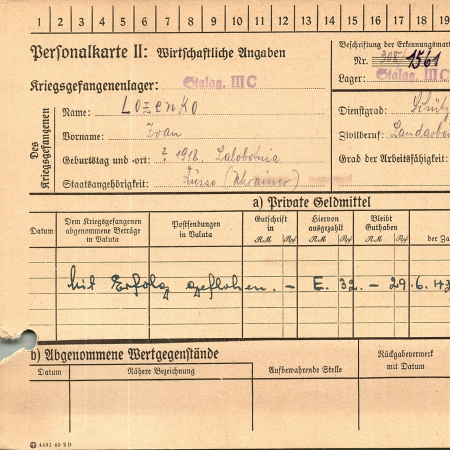 1 2 3 4 5 6 7 8 9 10 11 12 13 14 15 16 17 18 19
Personalkarte II: Wirtschaftliche Angaben
Beschriftung der Erkennungsmar
Nr. 1561
Kriegsgefangenenlager: Stalag. III C
Lager: Stalag. III C
Des Kriegsgefangenen
Name: Lozenko
Dienstgrad:
Vorname: Ivan
Zivilberuf: Landarbei
Geburtstag und -ort: ? 1918.
Grad der Arbeitsfähigkeit:
Staatsangehörigkeit: Russe (Ukrainer)
a) Private Geldmittel
Datum
Dem Kriegsgefangenen abgenommene Beträge in Valuta
Postsendungen in Valuta
Gutschrift in
RM Rpf
Hiervon ausgezahlt
RM Rpf
Bleibt Guthaben
RM Rpf
der Za
Mit Erfolg geflohen. – E. 32. – 29.6.43
b) Abgenommene Wertgegenstände
Datum
Nähere Bezeichnung
Aufbewahrende Stelle
Rückgabevermerk mit Datum
4491 40 2 D